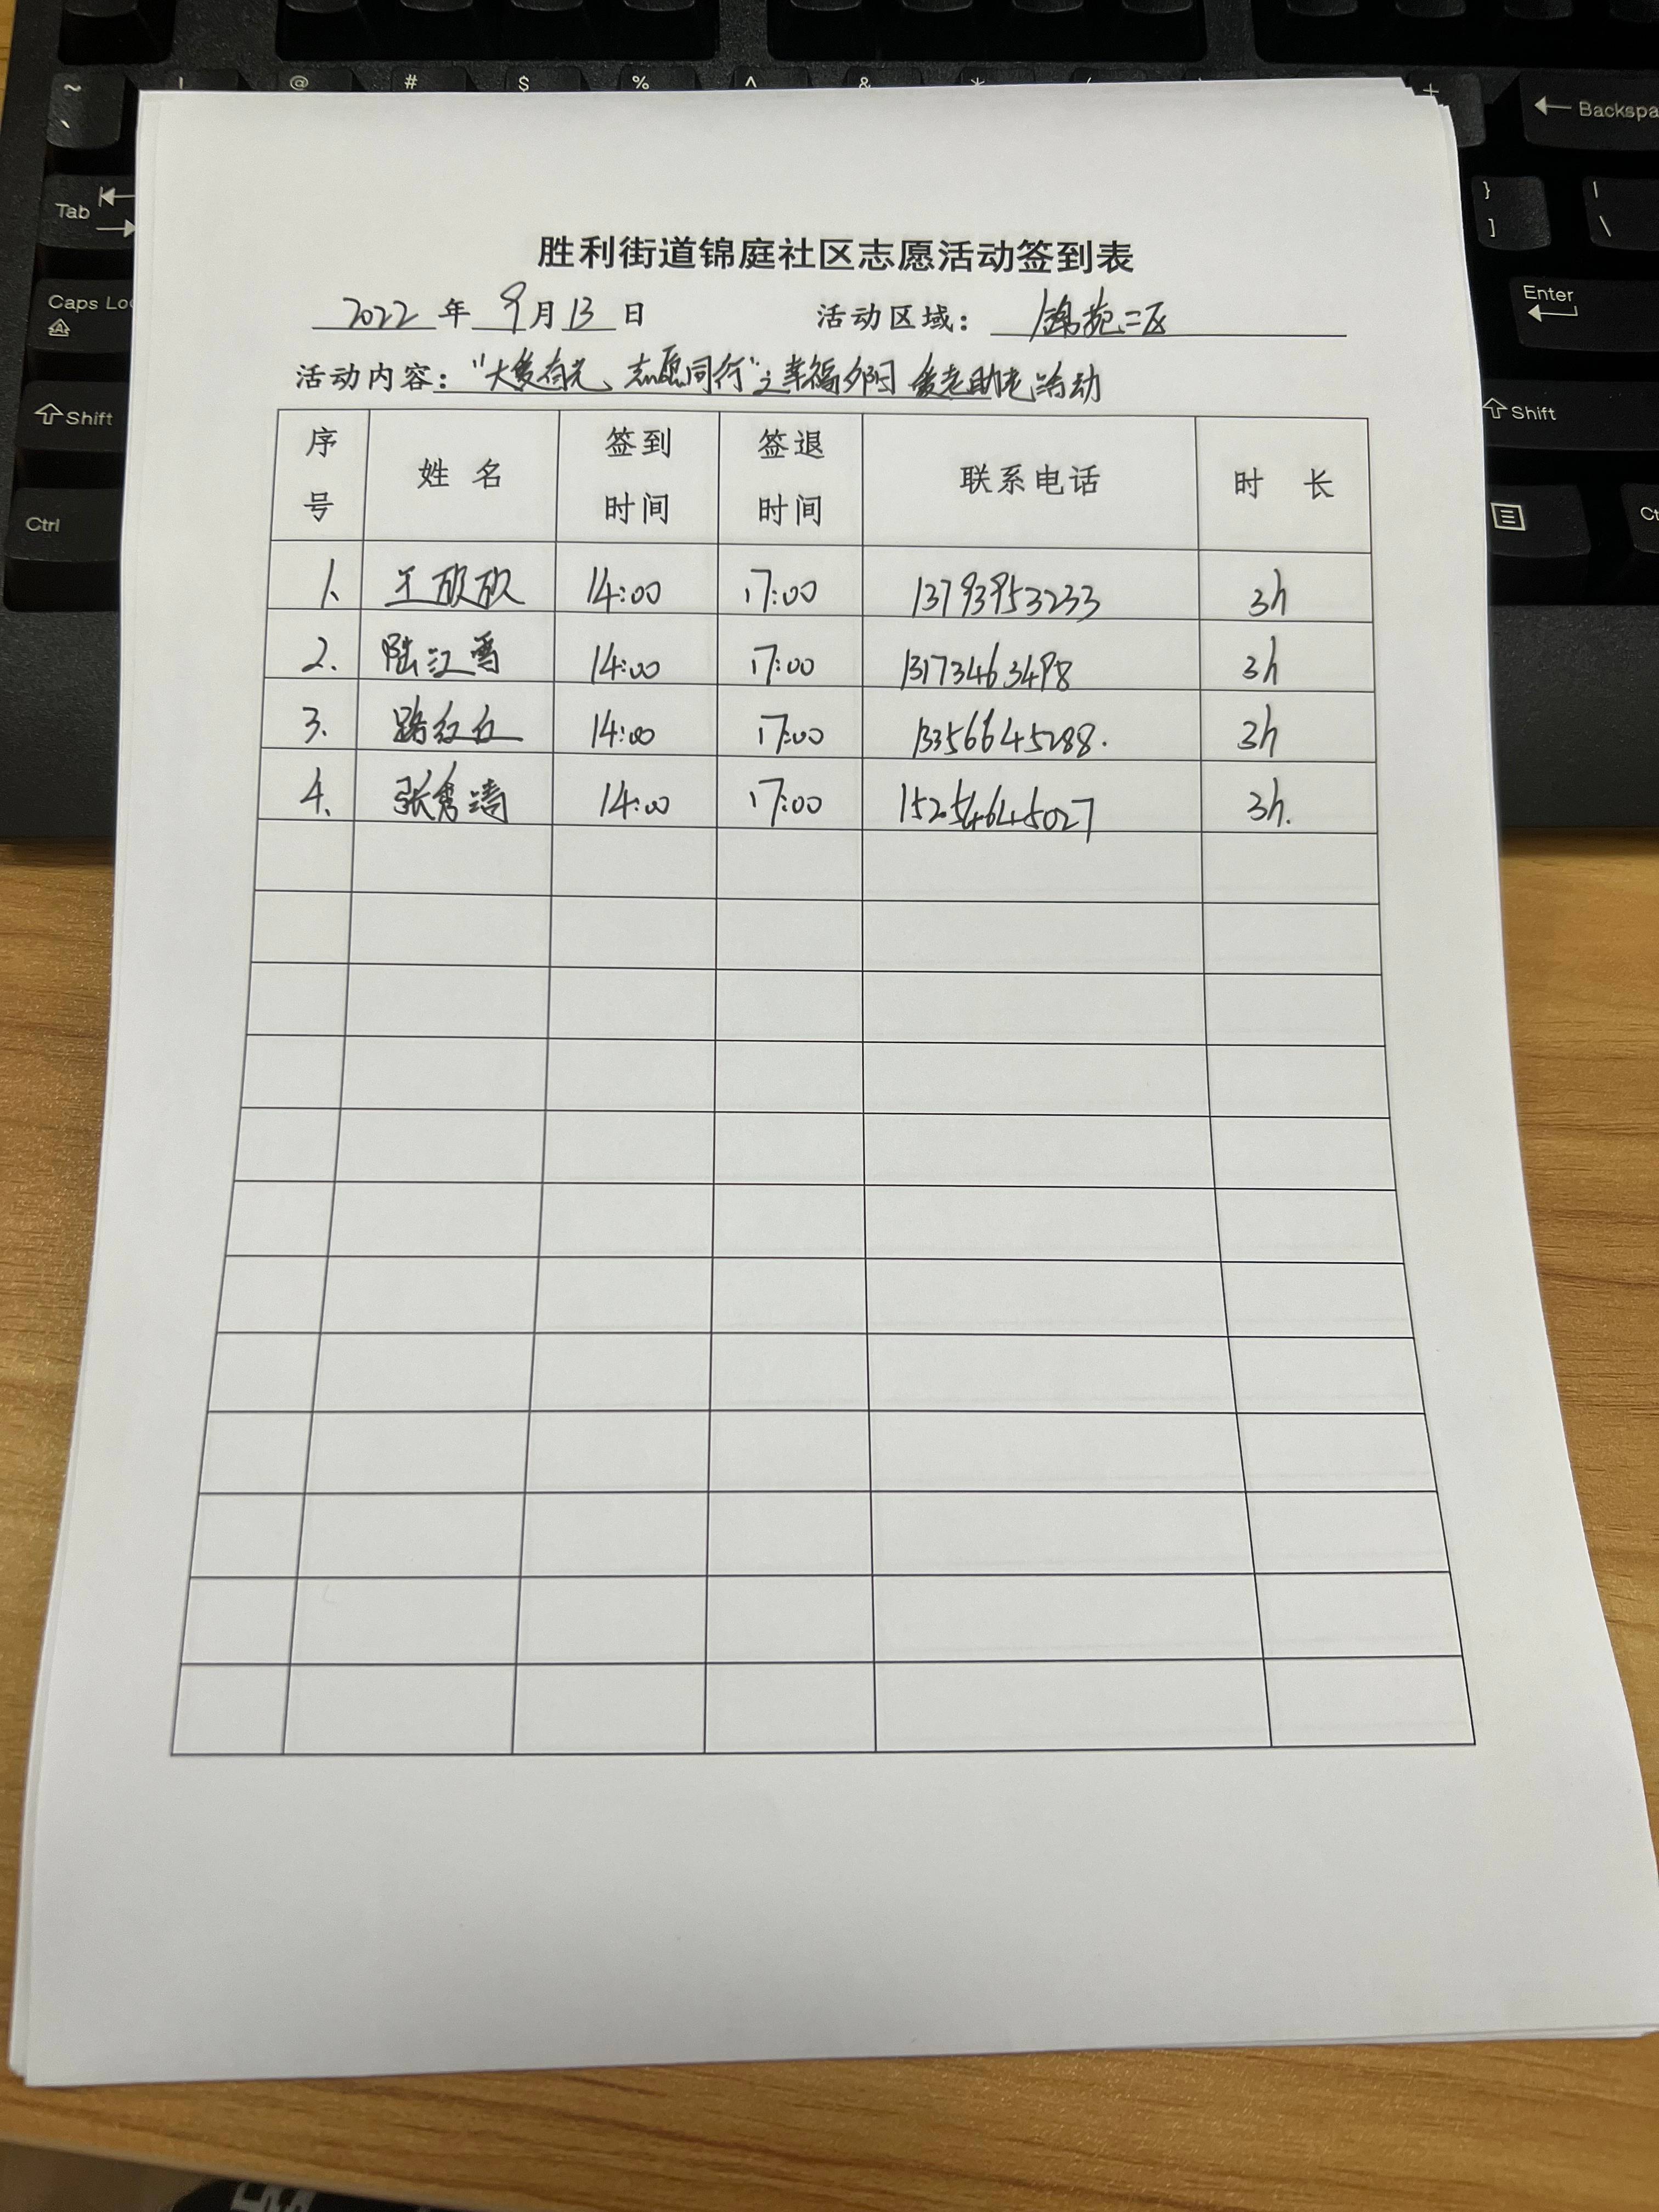 ~ ! @ # $ % ^ & * ( +
` ← Backspa
Tab } |
] \
Caps Lo
A
Enter
Shift
Shift
Ctrl
Ct
胜利街道锦庭社区志愿活动签到表
2022 年 9月 13 日 活动区域：锦苑二区
活动内容："大爱有光、志愿同行"之幸福夕阳 爱老助老活动
序号 姓名 签到时间 签退时间 联系电话 时长
1、 王欣欣 14:00 17:00 13793953233 3h
2、 陆江雪 14:00 17:00 13173463498 3h
3、 路红红 14:00 17:00 13356645288. 3h
4、 张秀清 14:00 17:00 15254645027 3h.